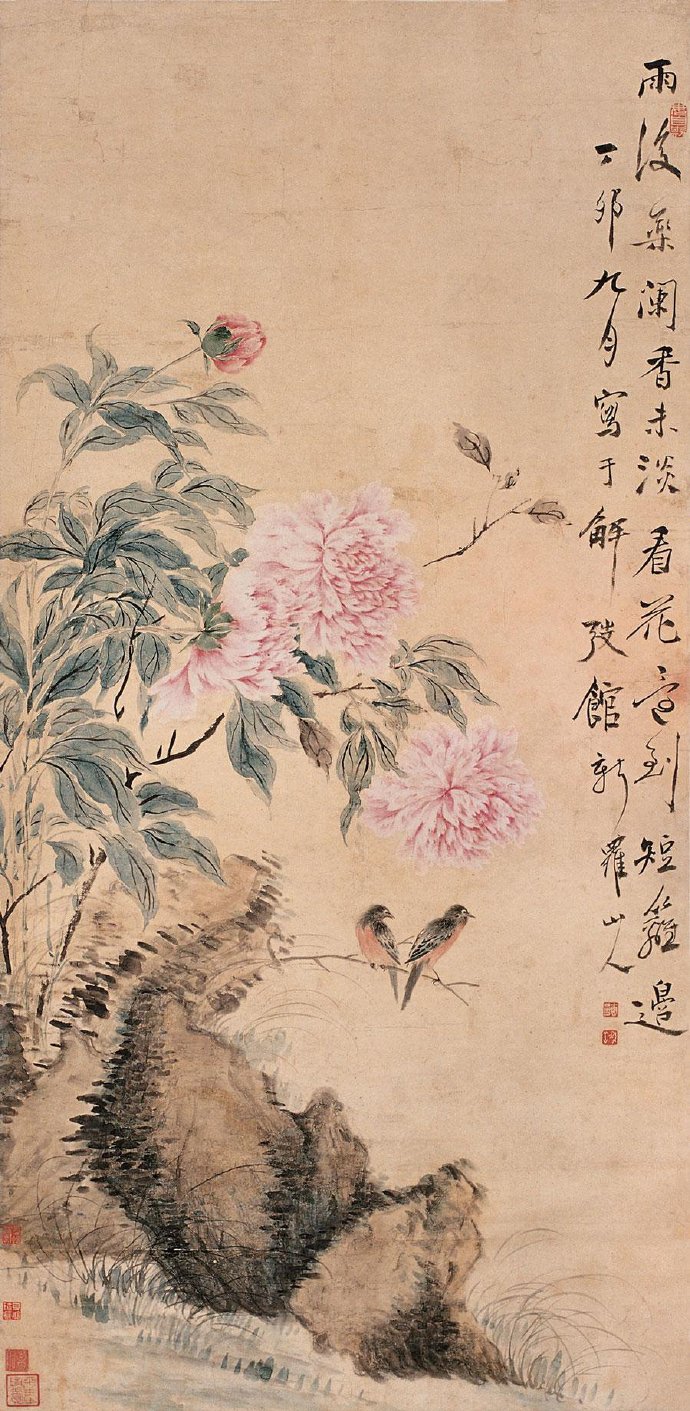 雨後藥闌香未淡看花宜到短籬邊
丁卯九月寫于解弢館新羅山人